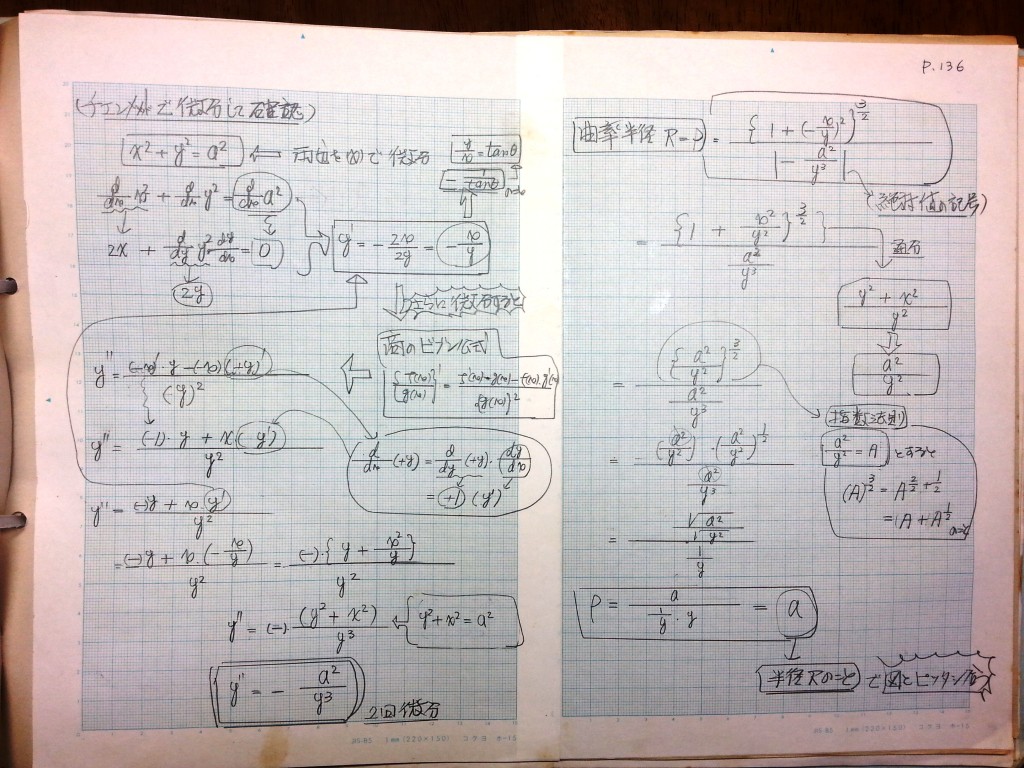 P.136
(チェンメソで微分して確認)
x² + y² = a² ⇐ 両辺を(x)で微分
y/x = tanθ
-1/tanθ
d/dx x² + d/dx y² = d/dx a²
2x + d/dy y² dy/dx = 0
2y
y' = -2x/2y = -x/y
さらに微分すると
商のビブン公式
{f(x)/g(x)}' = f'(x)·g(x) - f(x)·g'(x) / {g(x)}²
y'' = (-x)'·y - (-x)(+y)' / (-y)²
y'' = (-1)·y + x(y') / y²
d/dx (+y) = d/dy (+y)·dy/dx
= (+1)(y')
y'' = (-)y + x y' / y²
= (-)y + x·(-x/y) / y² = (-)·{y + x²/y} / y²
y'' = (-) (y² + x²) / y³ ← y² + x² = a²
y'' = - a²/y³
2回微分
曲率半径 R = ρ = {1 + (-x/y)²}^3/2 / |-a²/y³|
(絶対値の記号)
= {1 + x²/y²}^3/2 / a²/y³
通分
y² + x² / y²
a²/y²
= {a²/y²}^3/2 / a²/y³
指数法則
a²/y² = A とすると
= (a²/y²)·(a²/y²)^1/2 / a²/y³
(A)^3/2 = A^2/2 + 1/2
= A + A^1/2
= √a²/√y² / 1/y
ρ = a / 1/y · y = a
半径Rのこと で 図とピッタシ